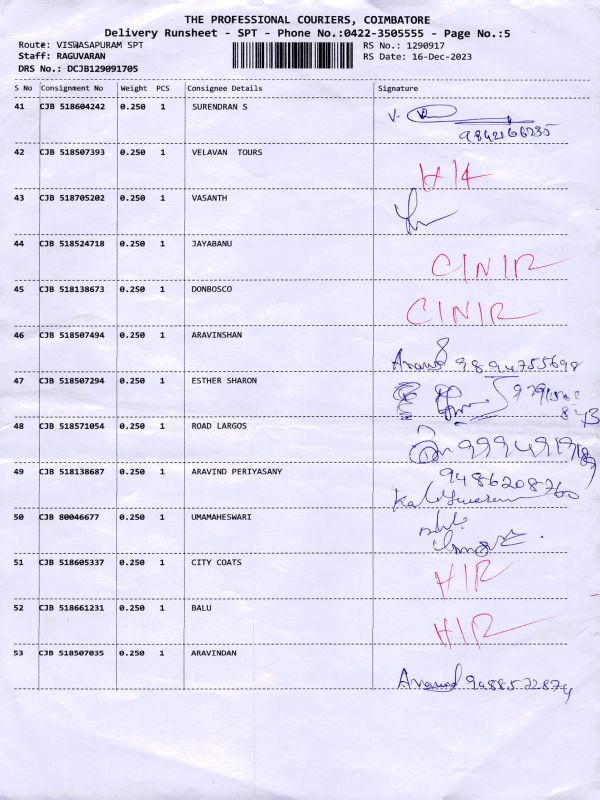 THE PROFESSIONAL COURIERS, COIMBATORE
Delivery Runsheet - SPT - Phone No.:0422-3505555 - Page No.:5
Route: VISWASAPURAM SPT RS No.: 1290917
Staff: RAGUVARAN RS Date: 16-Dec-2023
DRS No.: DCJB129091705
S No Consignment No Weight PCS Consignee Details Signature
41 CJB 518604242 0.250 1 SURENDRAN S
42 CJB 518507393 0.250 1 VELAVAN TOURS
43 CJB 518705202 0.250 1 VASANTH
44 CJB 518524718 0.250 1 JAYABANU C/N/R
45 CJB 518138673 0.250 1 DONBOSCO C/N/R
46 CJB 518507494 0.250 1 ARAVINSHAN
9894755698
47 CJB 518507294 0.250 1 ESTHER SHARON
48 CJB 518571054 0.250 1 ROAD LARGOS
49 CJB 518138687 0.250 1 ARAVIND PERIYASANY
9486208760
50 CJB 80046677 0.250 1 UMAMAHESWARI
51 CJB 518605337 0.250 1 CITY COATS H/R
52 CJB 518661231 0.250 1 BALU H/R
53 CJB 518507035 0.250 1 ARAVINDAN